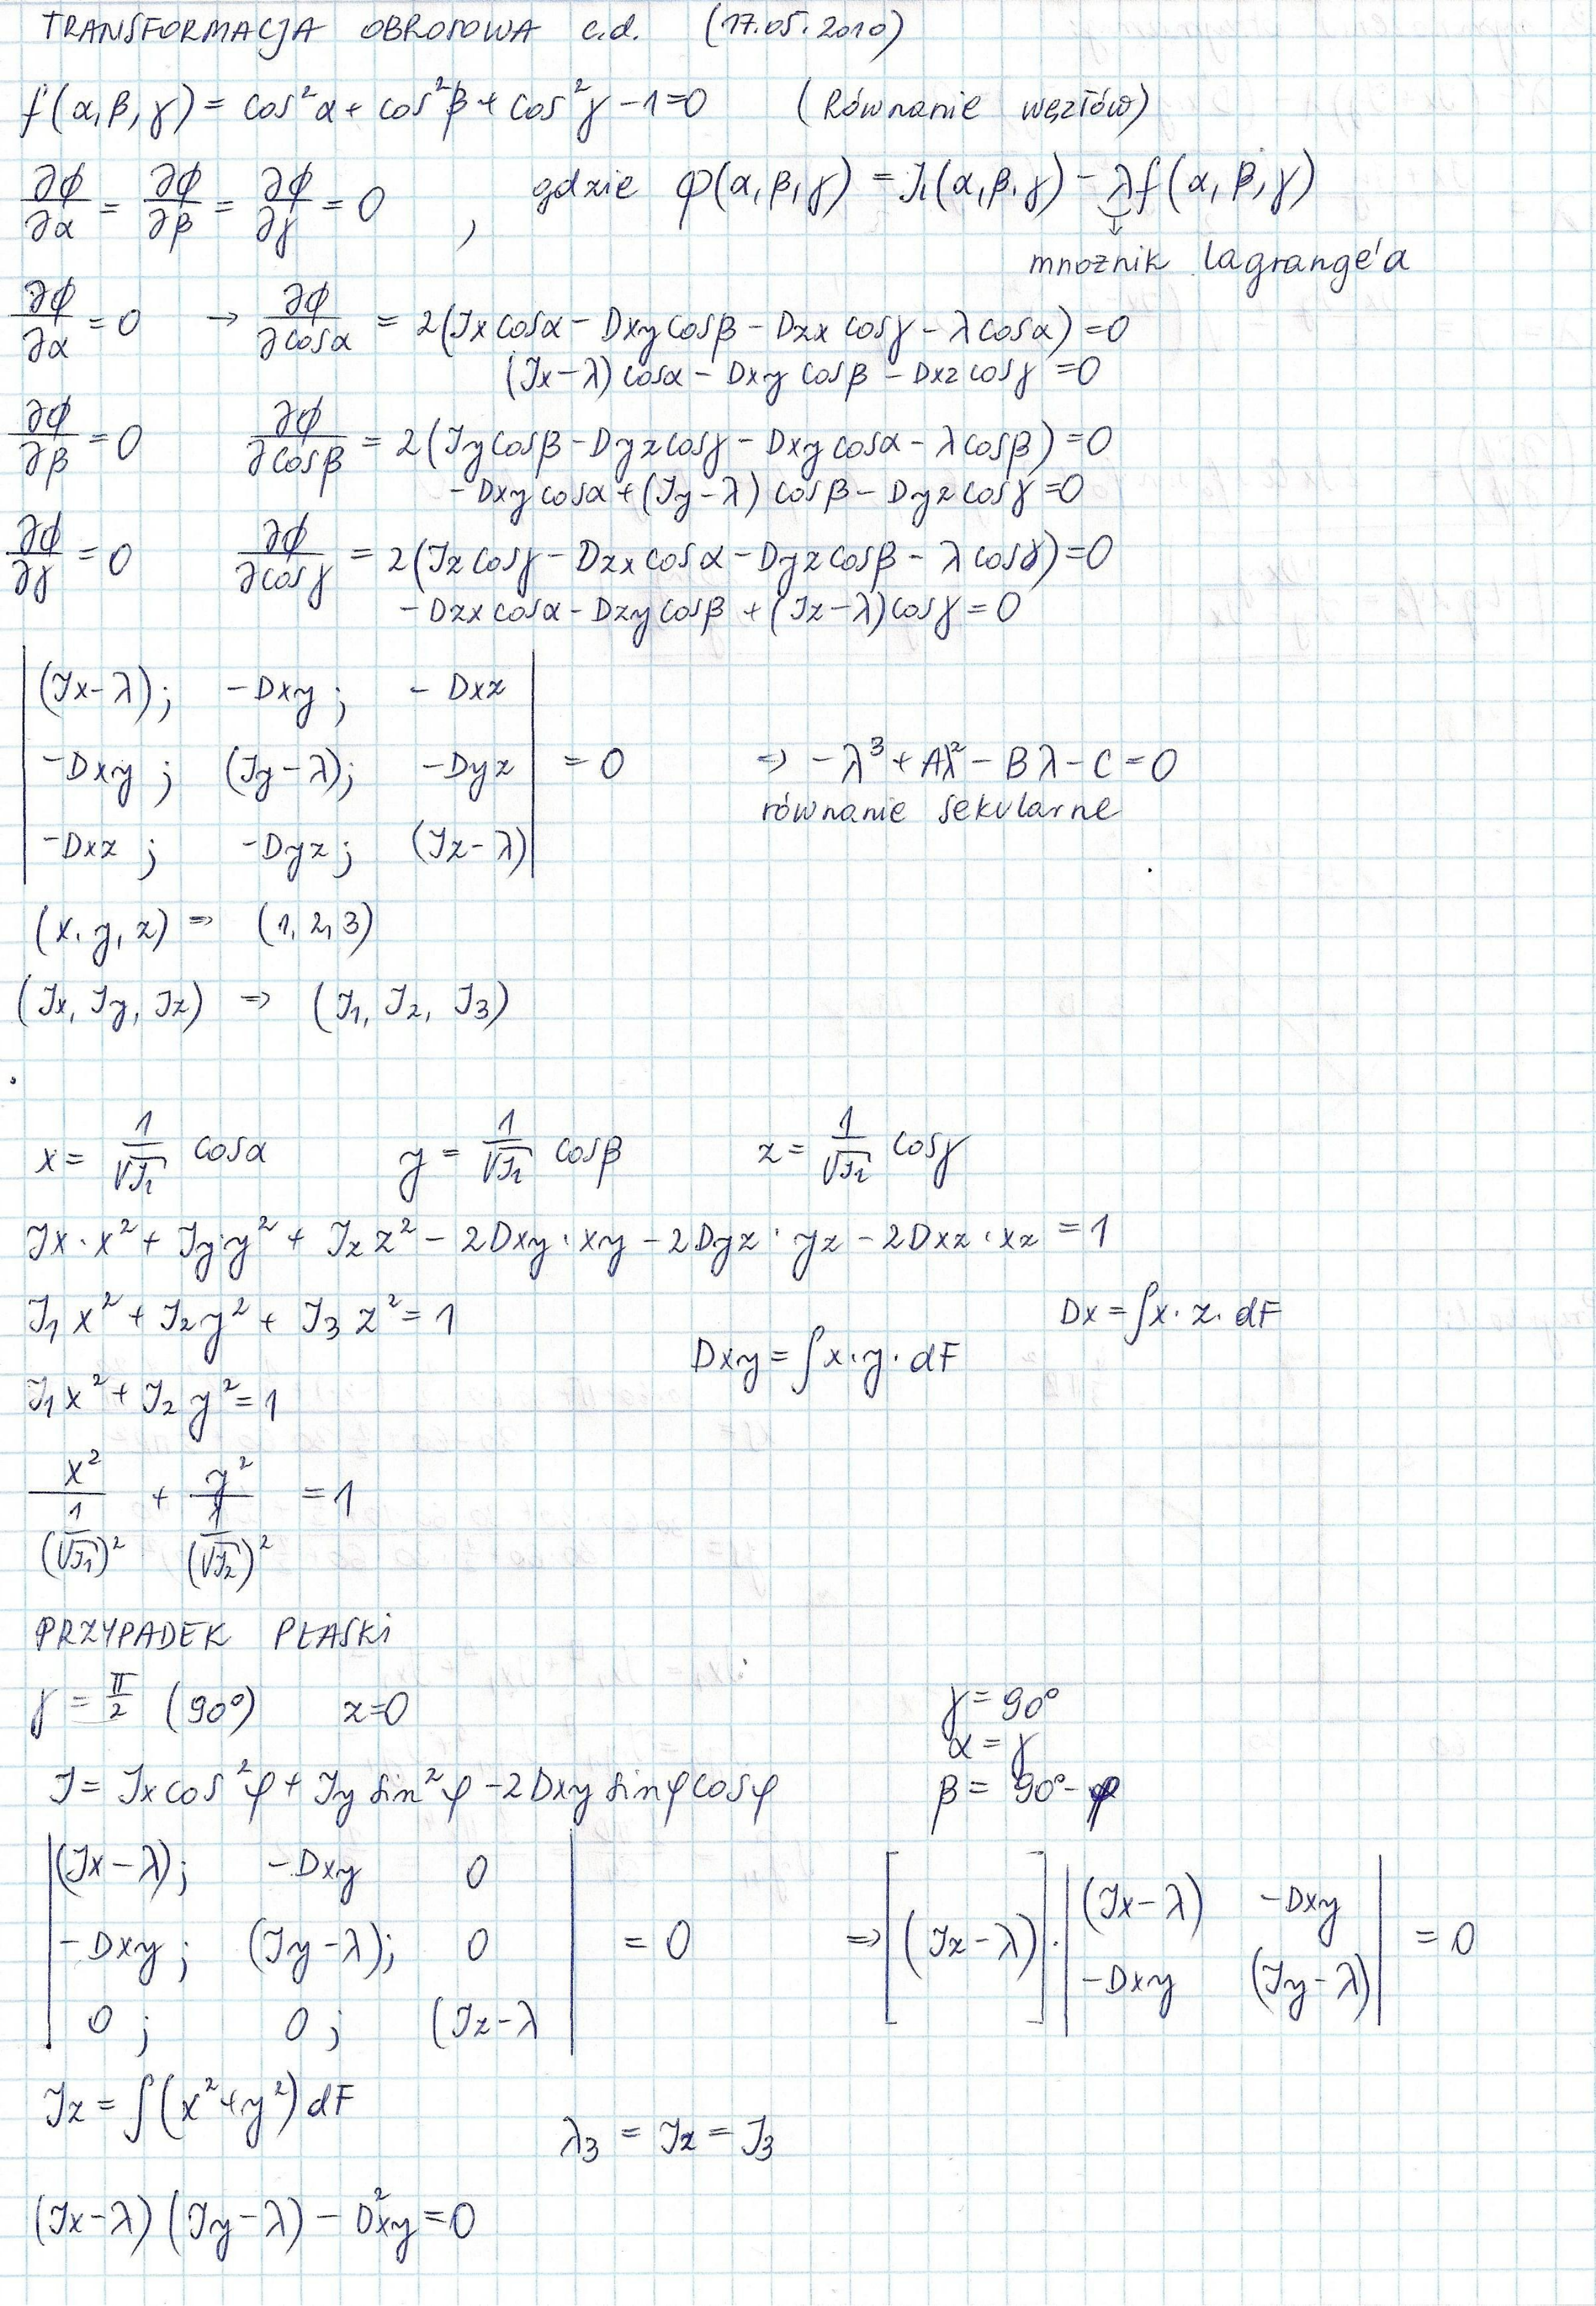 TRANSFORMACJA OBROTOWA c.d. (17.05.2010)
f(α,β,γ) = cos²α + cos²β + cos²γ - 1 = 0 (Równanie węzłów)
∂φ/∂α = ∂φ/∂β = ∂φ/∂γ = 0 , gdzie φ(α,β,γ) = J₁(α,β,γ) - λf(α,β,γ)
↓
mnożnik Lagrange'a
∂φ/∂α = 0 → ∂φ/∂cosα = 2(Jx cosα - Dxy cosβ - Dzx cosγ - λ cosα) = 0
(Jx-λ) cosα - Dxy cosβ - Dxz cosγ = 0
∂φ/∂β = 0 ∂φ/∂cosβ = 2(Jy cosβ - Dyz cosγ - Dxy cosα - λ cosβ) = 0
-Dxy cosα + (Jy-λ) cosβ - Dyz cosγ = 0
∂φ/∂γ = 0 ∂φ/∂cosγ = 2(Jz cosγ - Dzx cosα - Dyz cosβ - λ cosγ) = 0
-Dzx cosα - Dzy cosβ + (Jz-λ) cosγ = 0
|(Jx-λ); -Dxy; -Dxz|
|-Dxy; (Jy-λ); -Dyz| = 0 => -λ³ + Aλ² - Bλ - C = 0
równanie sekularne
|-Dxz; -Dyz; (Jz-λ)|
(x, y, z) => (1, 2, 3)
(Jx, Jy, Jz) => (J₁, J₂, J₃)
x = 1/√J₁ cosα y = 1/√J₁ cosβ z = 1/√J₁ cosγ
Jx·x² + Jy·y² + Jz z² - 2Dxy·xy - 2Dyz·yz - 2Dxz·xz = 1
J₁x² + J₂y² + J₃z² = 1 Dx = ∫x·z·dF
Dxy = ∫x·y·dF
J₁x² + J₂y² = 1
x²/(1/√J₁)² + y²/(1/√J₂)² = 1
PRZYPADEK PŁASKI
γ = π/2 (90°) z=0 γ = 90°
α = γ
J = Jx cos²φ + Jy sin²φ - 2Dxy sinφ cosφ β = 90° - φ
|(Jx-λ); -Dxy 0|
|-Dxy; (Jy-λ); 0| = 0 => [(Jz-λ)]·|(Jx-λ) -Dxy| = 0
|-Dxy (Jy-λ)|
|0; 0; (Jz-λ|
Jz = ∫(x²+y²)dF
λ₃ = Jz = J₃
(Jx-λ)(Jy-λ) - D²xy = 0